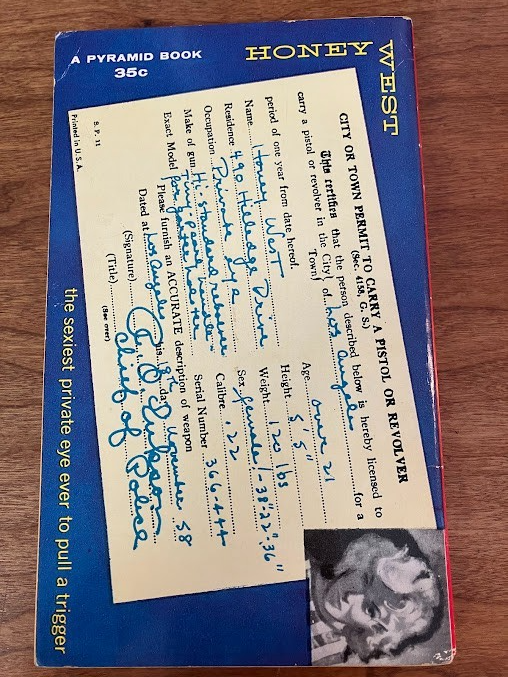 A PYRAMID BOOK
35c
HONEY WEST
CITY OR TOWN PERMIT TO CARRY A PISTOL OR REVOLVER
(Sec. 4158, G. S.)
This certifies that the person described below is hereby licensed to
carry a pistol or revolver in the (City) of Los Angeles for a
Town)
period of one year from date hereof.
Name Honey West Age over 21
Residence 490 Hilledge Drive Height 5' 5"
Occupation Private Eye Weight 120 lbs
Make of gun Hi-standard revolver Sex female/-38"-22"-36"
Exact Model Calibre .22
for garter holster Serial Number 366-444
Please furnish an ACCURATE description of weapon
Dated at Los Angeles this 8th day November 58
(Signature)
(Title) Chief of Police
(See over)
S. P. 11
Printed in U.S.A.
the sexiest private eye ever to pull a trigger